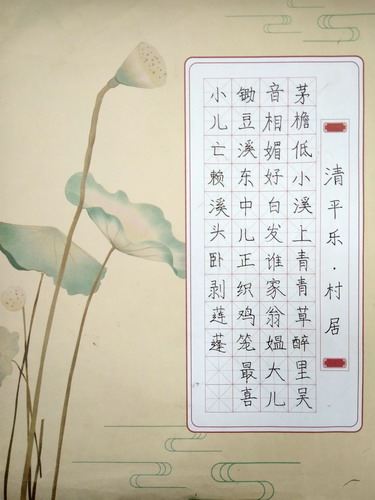 清平乐·村居
茅檐低小溪上青青草醉里吴
音相媚好白发谁家翁媪大儿
锄豆溪东中儿正织鸡笼最喜
小儿亡赖溪头卧剥莲蓬